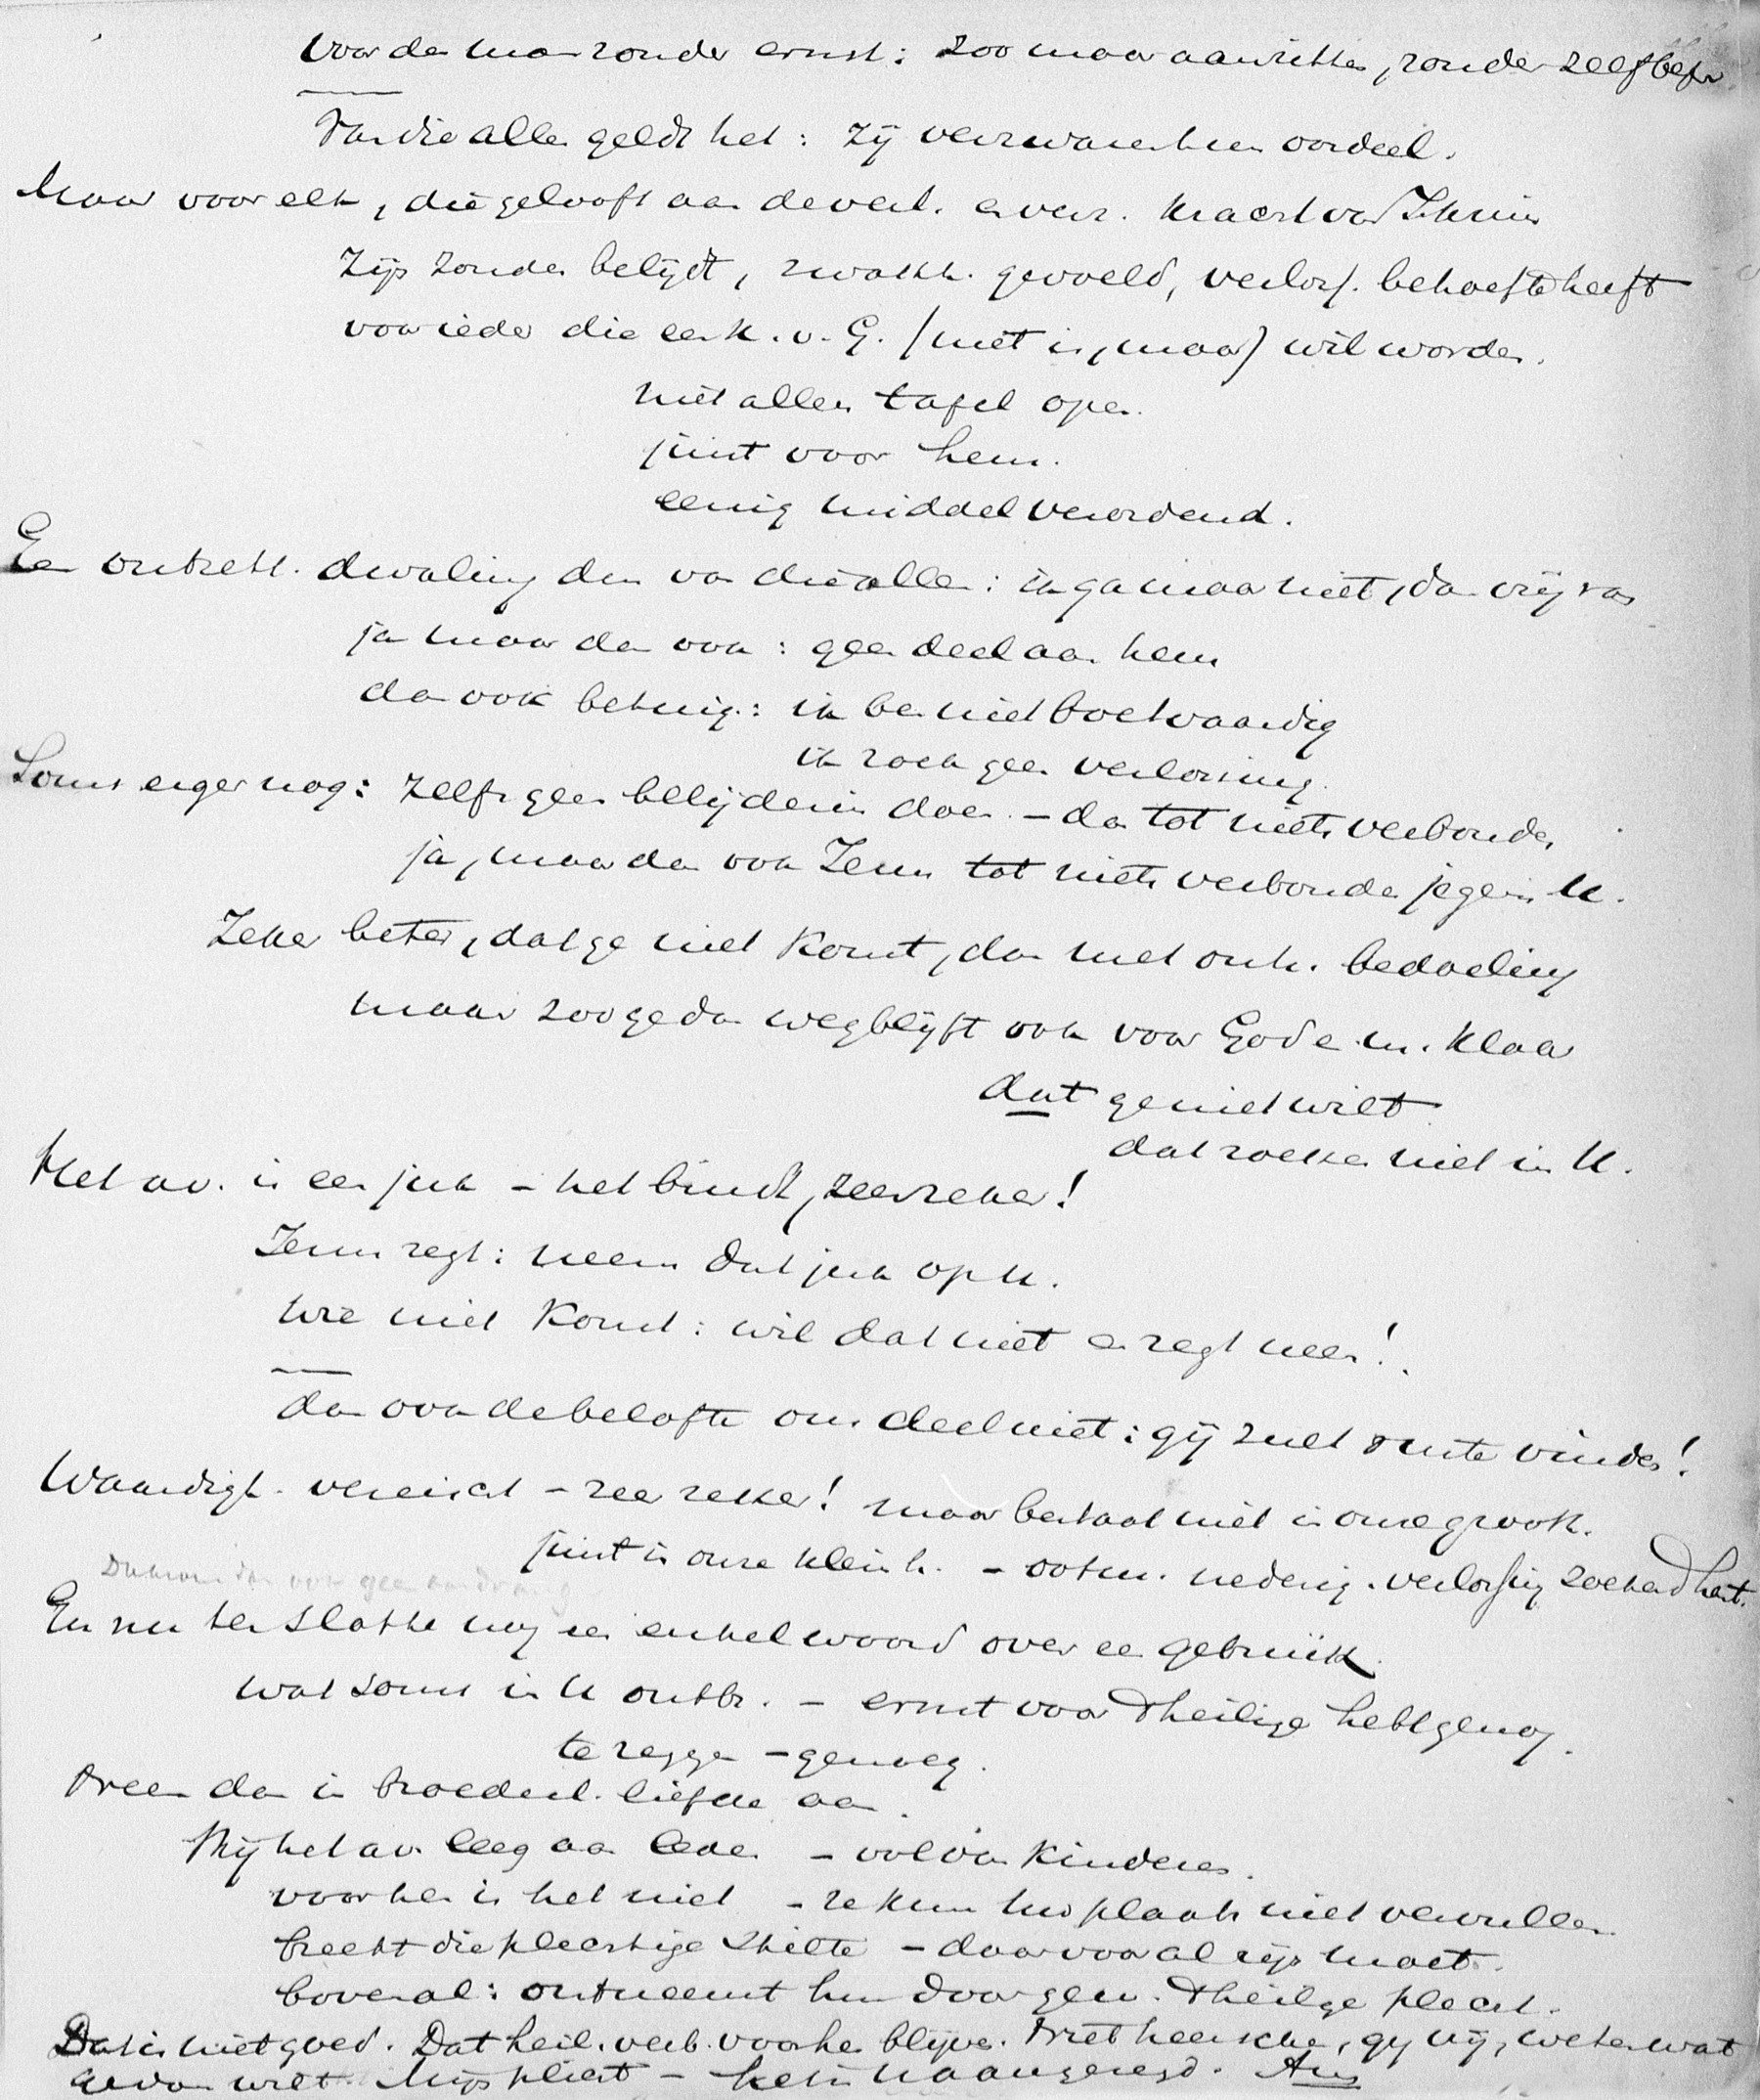 Voor den man zonder ernst: zoo maar aanzitten, zonder zelfbepr
Van die allen geldt het: zij verzwaren hun oordeel.
Maar voor elk, die gelooft aan de verl. en verz. kracht van J. kruis
Zijn zonden belijdt, zwakh. gevoeld, verloss. behoefte heeft
voor ieder die een k. v. G. (niet is, maar) wil worden.
niet alleen tafel open.
juist voor hem.
eenig middel verordend.
Een ontzett. dwaling dus van die allen: ik ga maar niet, dan vrij van
ja maar dan ook: geen deel aan hem
dan ook betuig.: ik ben niet boetvaardig
ik zoek geen verlossing.
Soms erger nog: zelfs geen belijdenis doen. – dan tot niets verbonden
ja, maar dan ook Jezus tot niets verbonden jegens U.
Zeker beter, dat ge niet komt, dan met onh. bedoeling
maar zoo ge dan wegblijft ook voor God e. m. klaar
dat ge niet wilt
dat zoeken niet in U.
Het av. is een juk – het bindt, zeer zeker!
Jezus zegt: neem dat juk op U.
Wie niet komt: wil dat niet en zegt neen!
dan ook de belofte ons deel niet: gij zult ruste vinden!
Waardigh. vereischt – zeer zeker! maar bestaat niet in onze grooth.
juist in onze kleinh. – ootm. nederig. verlossing zoekend hart.
Daarom dan ook geen
En nu ten slotte nog een enkel woord over een gebruik
Wat soms in U ontbr. – ernst voor 't heilige hebt genog.
te zeggen – genoeg.
Treen dan in broederl. liefde aan.
Mij het av. leeg aan leden – vol van kinderen.
voor hen is het niet – ze kunn hun plaats niet vervullen
breekt die plechtige stilte – daarvoor al zijn moet.
bovenal: ontneemt hun door gew. 't heilige plecht.
Dat is niet goed. Dat heil. verb. voor hen blijve. Niet heerschen, gij vrij, weten wat
ge doen wilt. Mijn plicht – heb 'k U aangezegd. Am